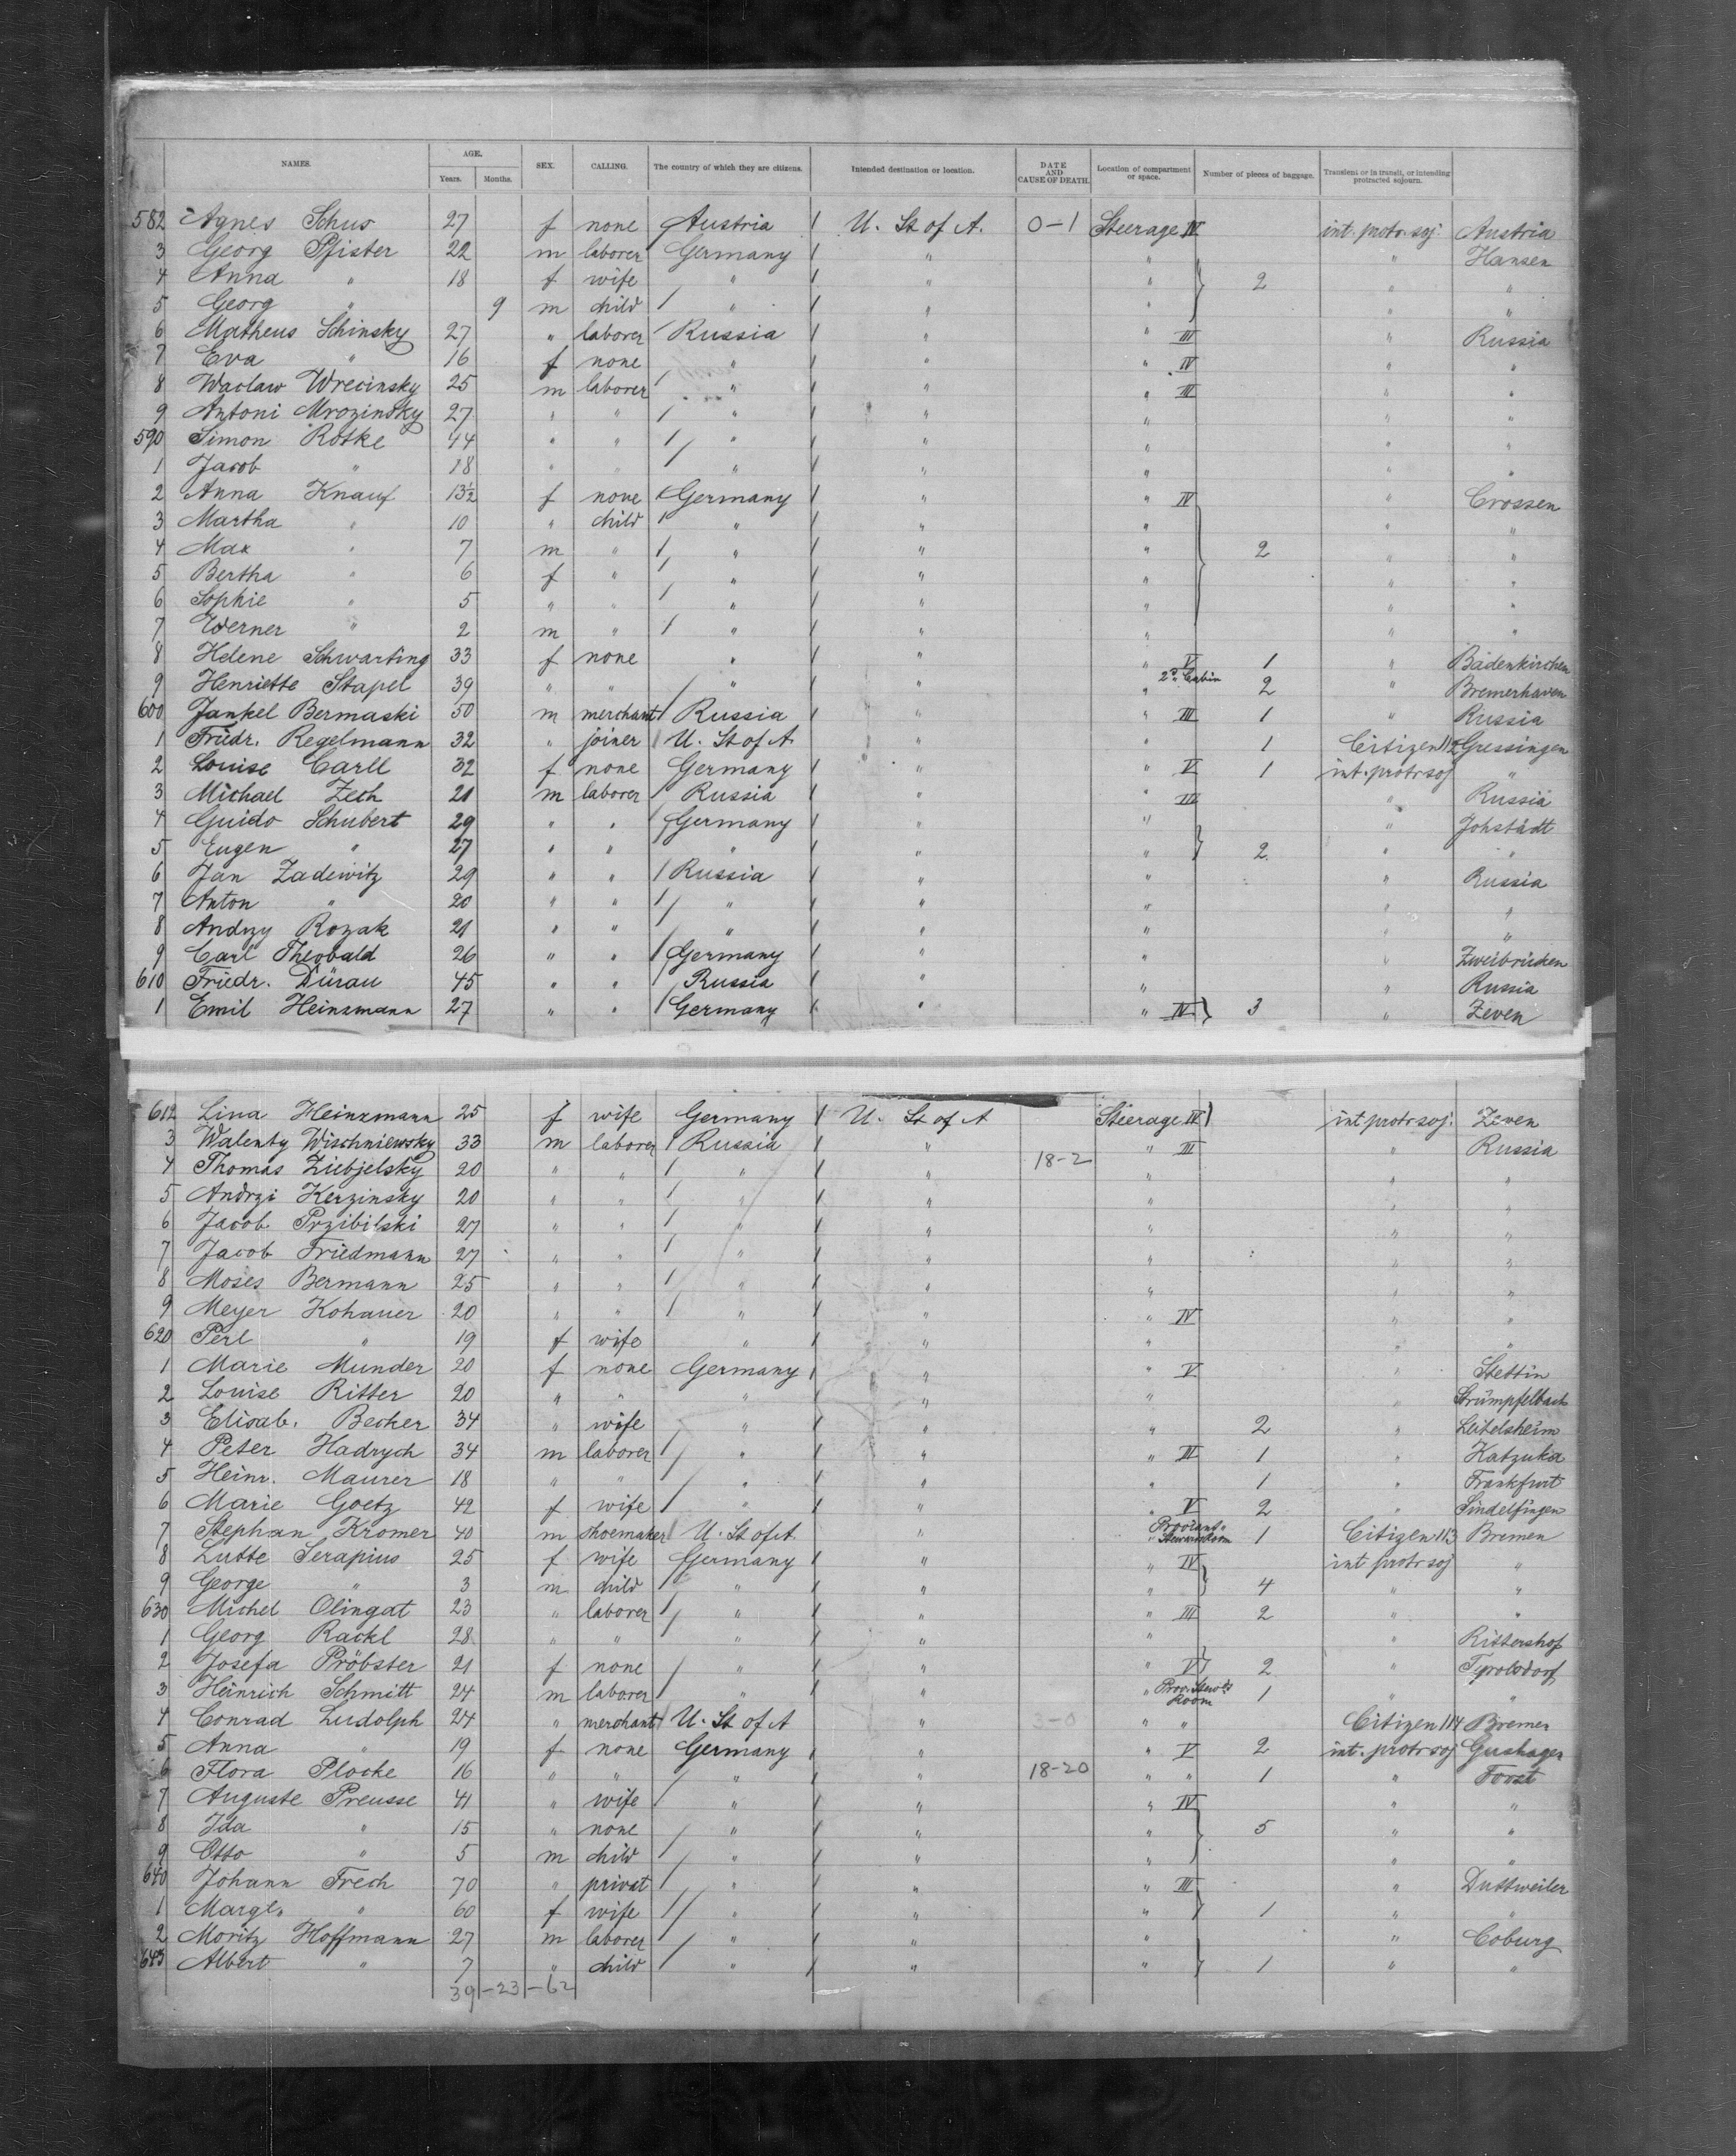 NAMES. AGE. Years. Months. SEX. CALLING. The country of which they are citizens. Intended destination or location. DATE AND CAUSE OF DEATH. Location of compartment or space. Number of pieces of baggage. Transient or in transit, or intending protracted sojourn.
582 Agnes Schus 27 f none Austria U. St of A. 0-1 Steerage IV int. protr. soj. Austria
3 Georg Pfister 22 m laborer Germany " " " Hansen
4 Anna " 18 f wife " " " 2 " "
5 Georg " 9 m child " " " " "
6 Matheus Schinsky 27 " laborer Russia " " III " Russia
7 Eva " 16 f none " " " IV " "
8 Waclaw Wrecinsky 25 m laborer " " " III " "
9 Antoni Mrozinsky 27 " " " " " " "
590 Simon Rotke 44 " " " " " " "
1 Jacob " 18 " " " " " " "
2 Anna Knauf 13½ f none Germany " " IV " Crossen
3 Martha " 10 " child " " " " "
4 Max " 7 m " " " " 2 " "
5 Bertha " 6 f " " " " " "
6 Sophie " 5 " " " " " " "
7 Werner " 2 m " " " " " "
8 Helene Schwarting 33 f none " " " V 1 " Badenkirchen
9 Henriette Stapel 39 " " " " " 2d Cabin 2 " Bremerhaven
600 Jankel Bermaski 50 m merchant Russia " " III 1 " Russia
1 Friedr. Regelmann 32 " joiner U. St of A. " " 1 Citizen 112 Gressingen
2 Louise Carll 32 f none Germany " " V 1 int. protr soj "
3 Michael Zech 21 m laborer Russia " " III " Russia
4 Guido Schubert 29 " " Germany " " " Johstadt
5 Eugen " 27 " " " " " 2 " "
6 Jan Zadewitz 29 " " Russia " " " Russia
7 Anton " 20 " " " " " " "
8 Andrzy Rozak 21 " " " " " " "
9 Carl Theobald 26 " " Germany " " " Zweibrücken
610 Friedr. Dürau 45 " " Russia " " " Russia
1 Emil Heinzmann 27 " " Germany " " IV 3 " Zeven
612 Lina Heinzmann 25 f wife Germany U. St of A Steerage IV int protr soj. Zeven
3 Walenty Wischniewsky 33 m laborer Russia " " III " Russia
4 Thomas Ziebjelsky 20 " " " " 18-2 " " "
5 Andrzi Kerzinsky 20 " " " " " " "
6 Jacob Przibilski 27 " " " " " " "
7 Jacob Friedmann 27 " " " " " " "
8 Moses Bermann 25 " " " " " " "
9 Meyer Kohauer 20 " " " " " IV " "
620 Perl " 19 f wife " " " " "
1 Marie Munder 20 f none Germany " " V " Stettin
2 Louise Ritter 20 " " " " " " Strümpfelbach
3 Elisab. Becker 34 " wife " " " 2 " Leibelsheim
4 Peter Hadrych 34 m laborer " " " III 1 " Katzuka
5 Heinr. Maurer 18 " " " " " 1 " Frankfurt
6 Marie Goetz 42 f wife " " " V 2 " Sindelfingen
7 Stephan Kromer 40 m shoemaker U. St of A. " Proviant " Steward Room 1 Citizen 113 Bremen
8 Lutte Serapius 25 f wife Germany " " IV int protr soj "
9 George " 3 m child " " " 4 " "
630 Michel Olingat 23 " laborer " " " III 2 " "
1 Georg Rackl 28 " " " " " " Rittershof
2 Josefa Pröbster 21 f none " " " V 2 " Tyrolsdorf
3 Heinrich Schmitt 24 m laborer " " " Prov. Stewds Room 1 " "
4 Conrad Ludolph 24 " merchant U. St of A " 3-0 " " Citizen 114 Bremen
5 Anna " 19 f none Germany " " V 2 int. protr soj Gushagen
6 Flora Plocke 16 " " " " 18-20 " " 1 " Forst
7 Auguste Preusse 41 " wife " " " IV " "
8 Ida " 15 " none " " " 5 " "
9 Otto " 5 m child " " " " "
640 Johann Frech 70 " privat " " " III " Duttweiler
1 Margt. " 60 f wife " " " 1 " "
2 Moritz Hoffmann 27 m laborer " " " " Coburg
643 Albert " 7 " child " " " 1 " "
39-23-62